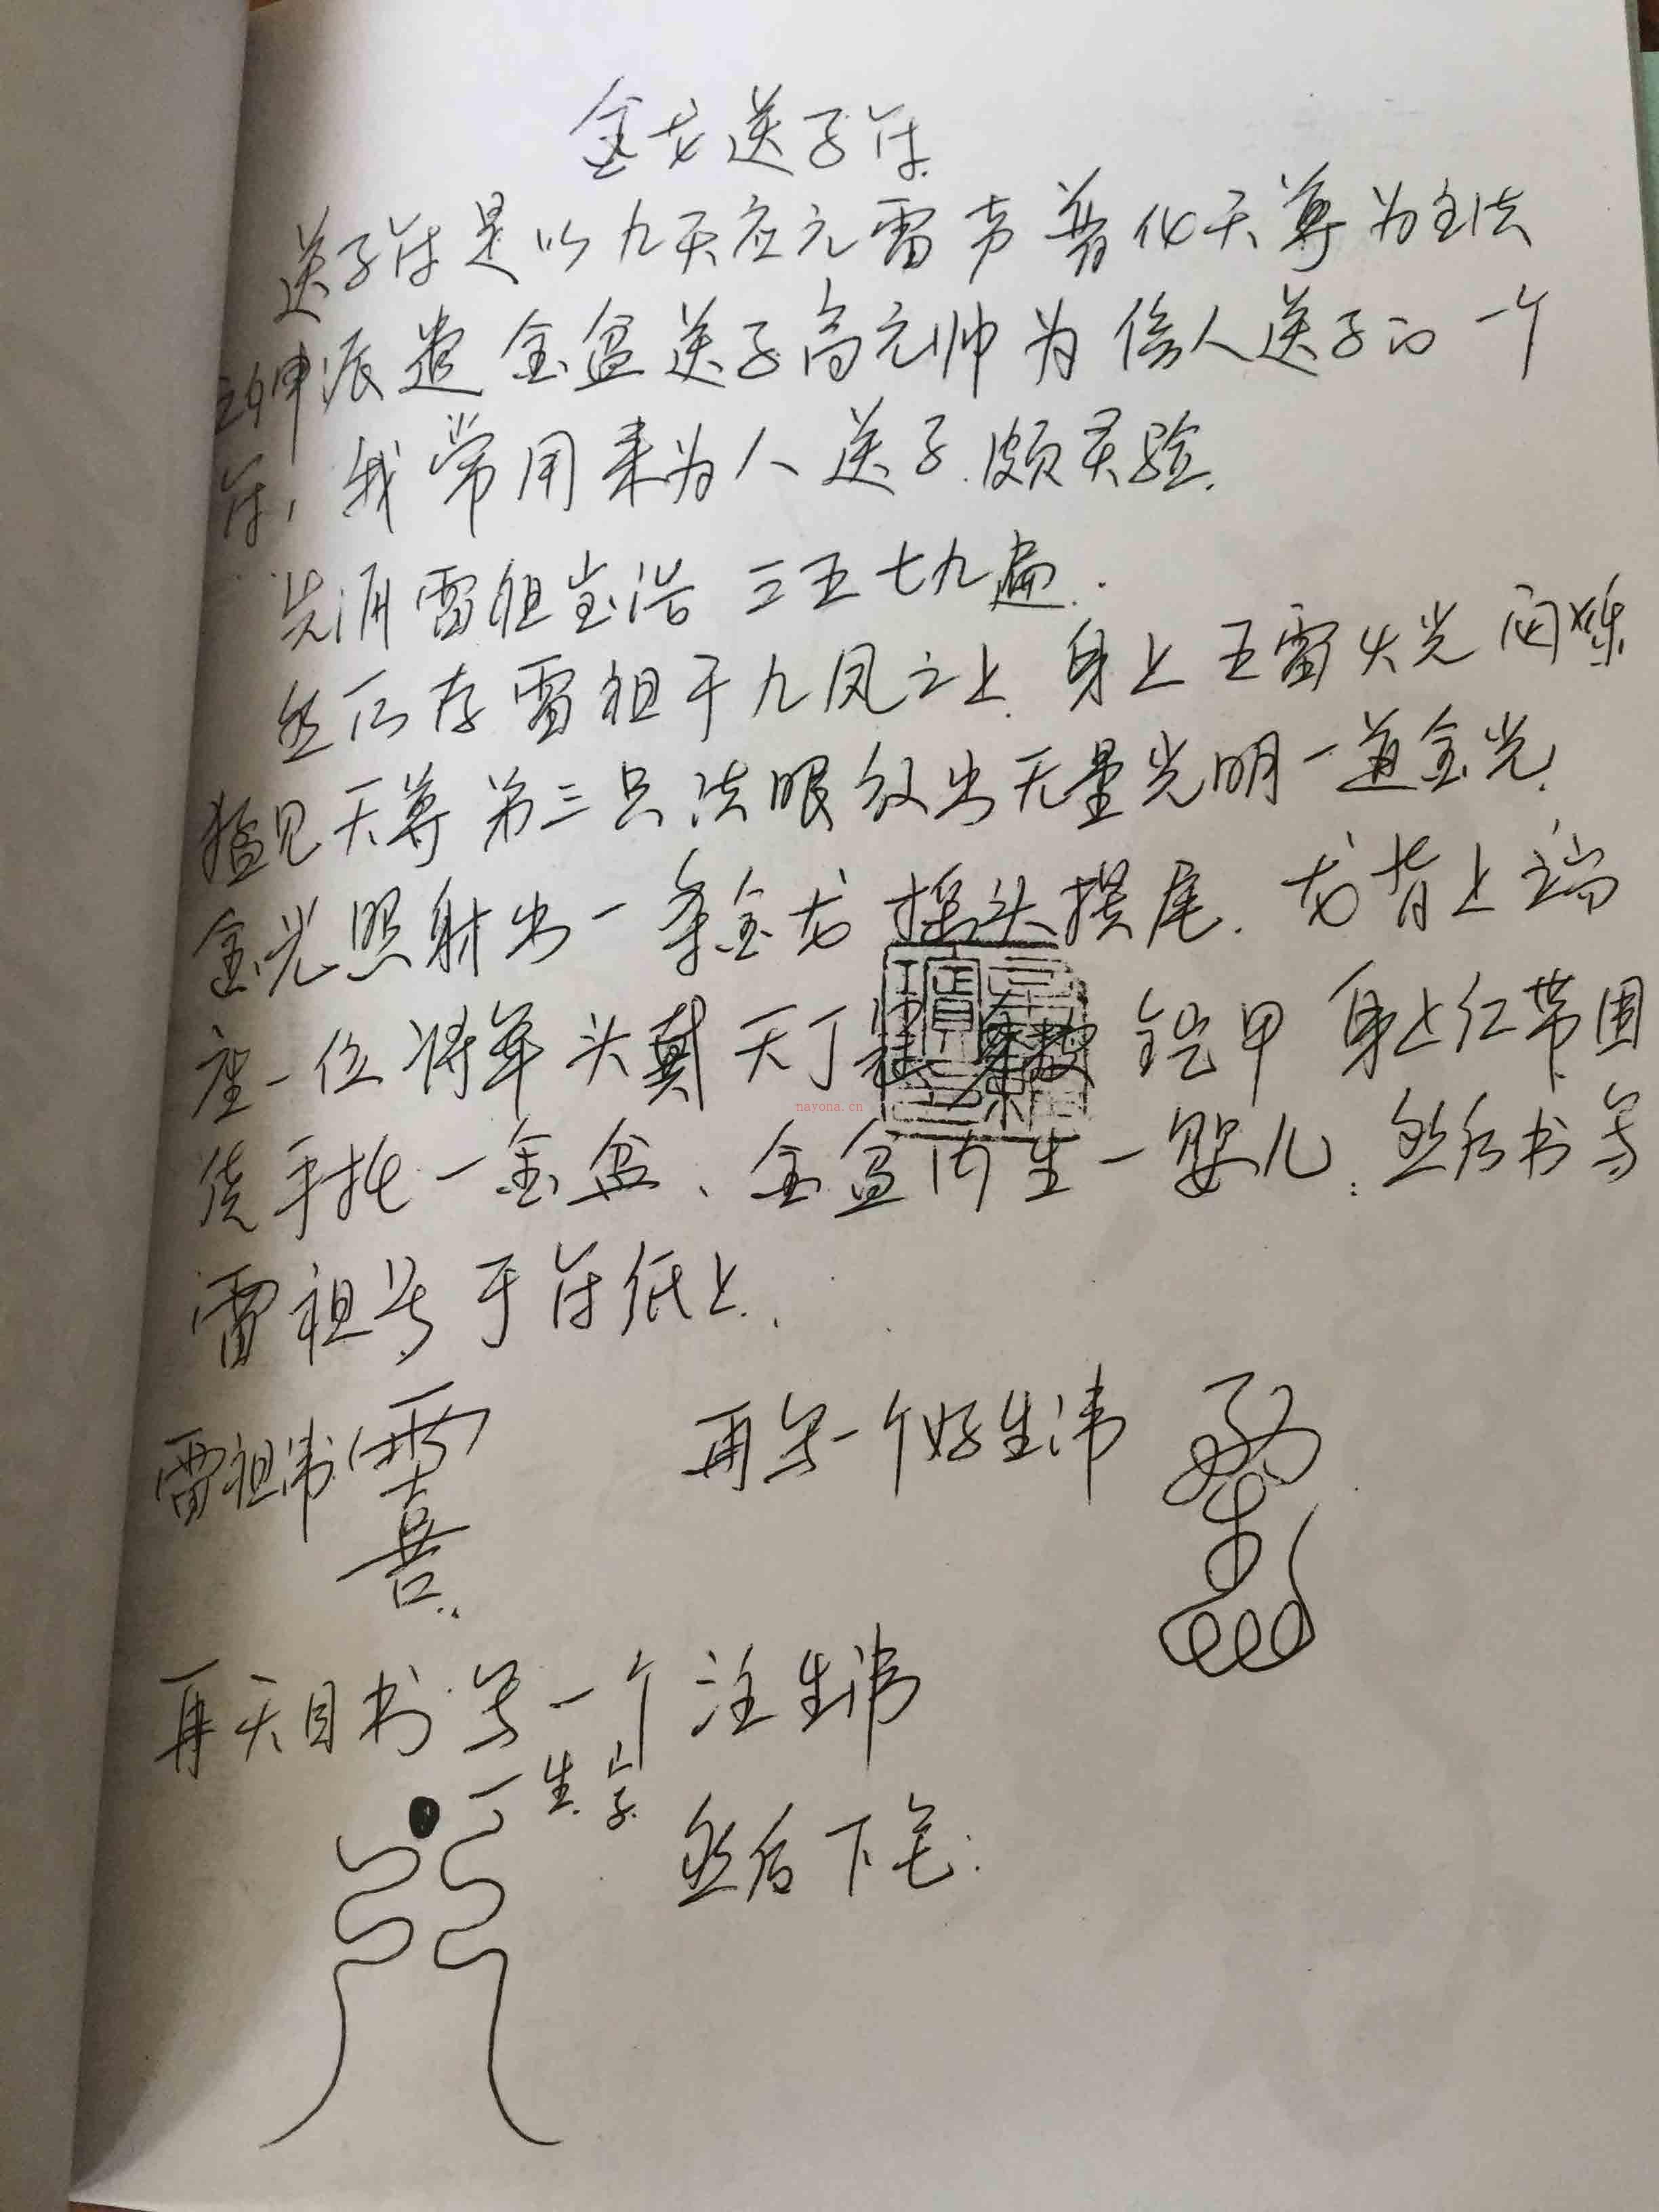 金龙送子符
送子符是以九天应元雷声普化天尊为主法
主神派遣金盆送子高元帅为信人送子的一个
符，我常用来为人送子.颇灵验.
先涌雷祖宝浩 三五七九遍.
然后存雷祖于九凤之上.身上五雷火光闪烁
猛见天尊第三只法眼放出无量光明一道金光.
金光照射出一条金龙摇头摆尾.龙背上端
座一位将军头戴天丁 身披铠甲 身上红带围
绕手托一金盆、金盆内生一婴儿:然后书写
雷祖号于符纸上.
雷祖讳 再写一个好生讳
再天目书写一个注生讳
一生字
然后下笔:
nayona.cn